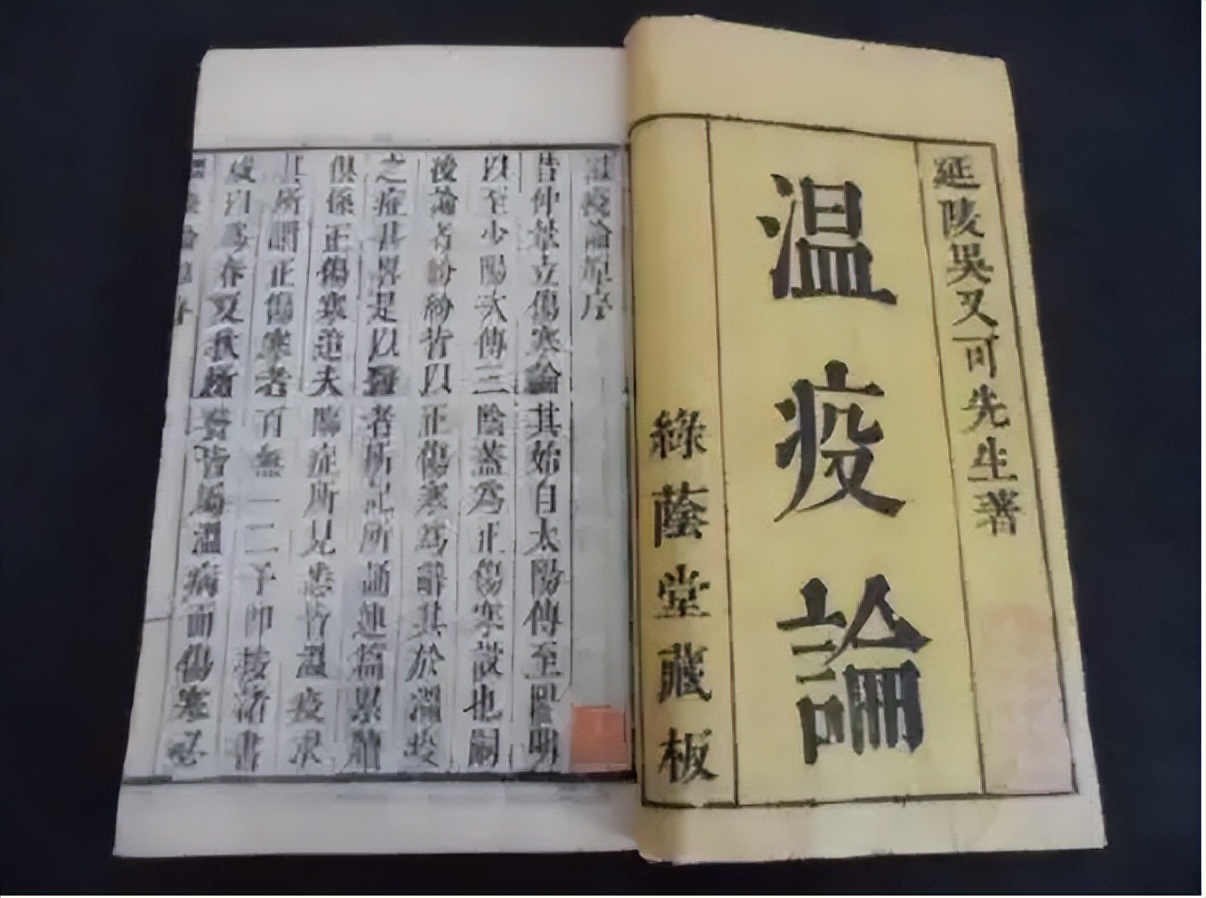 延陵吳又可先生著
温疫論
綠蔭堂藏板
溫疫論原序
昔仲景立傷寒論其始自太陽傳至陽明
以至少陽次傳三陰蓋爲正傷寒設也嗣
後論者紛紛皆以正傷寒爲辭其於溫疫
之症甚畧是以業者所記所誦連篇累牘
俱係正傷寒迨夫臨症所見悉皆溫疫求
其所謂正傷寒者百無一二予即按諸書
咸曰爲春夏秋所發皆屬溫病而傷寒必